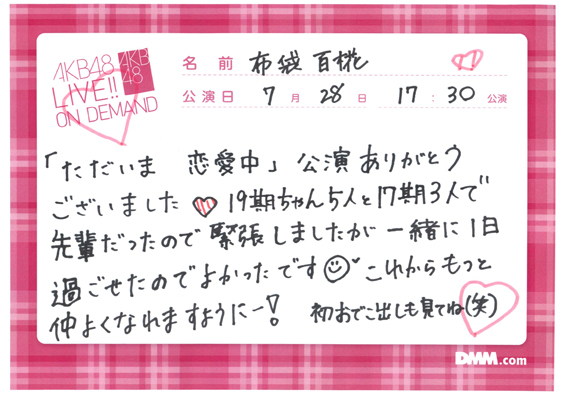 AKB48
LIVE!!
ON DEMAND
AKB
48
名前 布袋 百椛
公演日 7月 28日 17:30 公演
「ただいま 恋愛中」公演ありがとう
ございました 19期ちゃん5人と17期3人で
先輩だったので緊張しましたが一緒に1日
過ごせたのでよかったです これからもっと
仲よくなれますようにー! 初おでこ出しも見てね(笑)
DMM.com